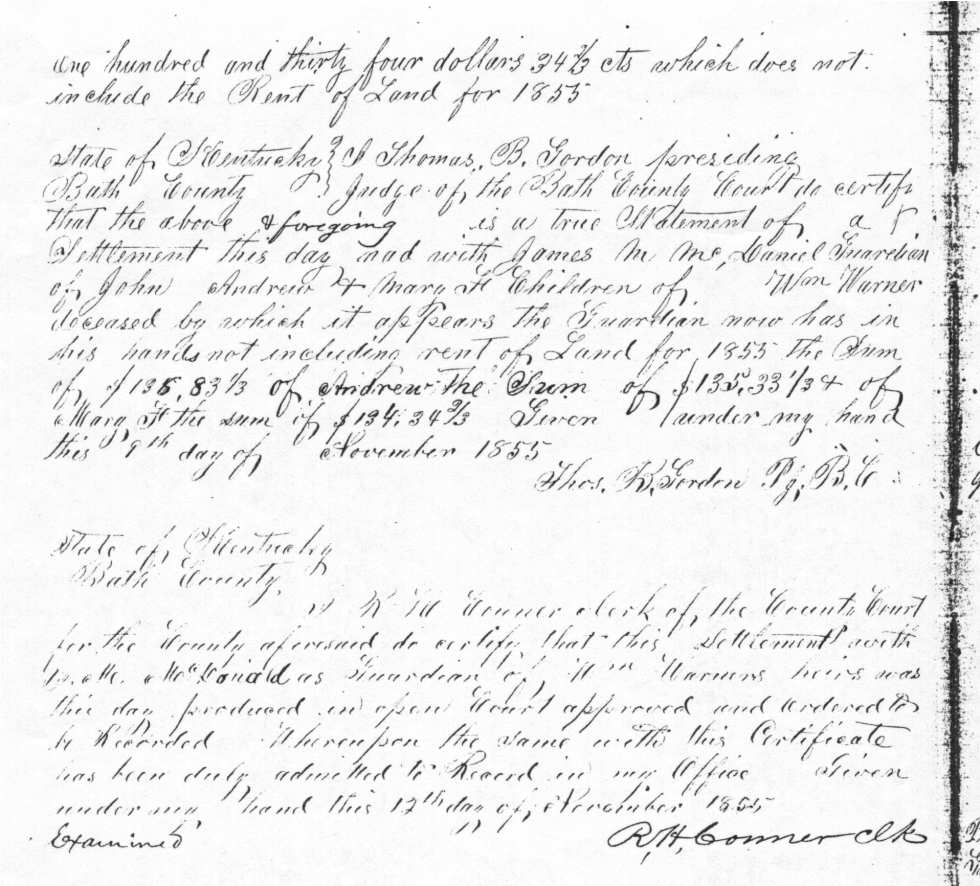 one hundred and thirty four dollars 34 2/3 cts which does not
include the Rent of Land for 1855
State of Kentucky } I Thomas B. Gordon presiding
Bath County } Judge of the Bath County Court do certify
that the above & foregoing is a true Statement of a
Settlement this day mad with James M McDaniel Guardian
of John Andrew & Mary F Children of Wm Warner
deceased by which it appears the Guardian now has in
his hands not including rent of Land for 1855 the Sum
of $135,83 1/3 of Andrew the Sum of $135.33 1/3 & of
Mary F the sum of $134.34 2/3 Given under my hand
this 9th day of November 1855
Thos. B. Gordon Pj, B.C
State of Kentucky
Bath County
I R H Conner clerk of the County Court
for the County aforesaid do certify that this Settlement with
McDonald as Guardian of Wm Warners heirs was
this day produced in open Court approved and ordered to
be Recorded Whereupon the same with this Certificate
has been duly admitted to Record in my Office Given
under my hand this 12th day of November 1855
Examined R,H, Conner Clk